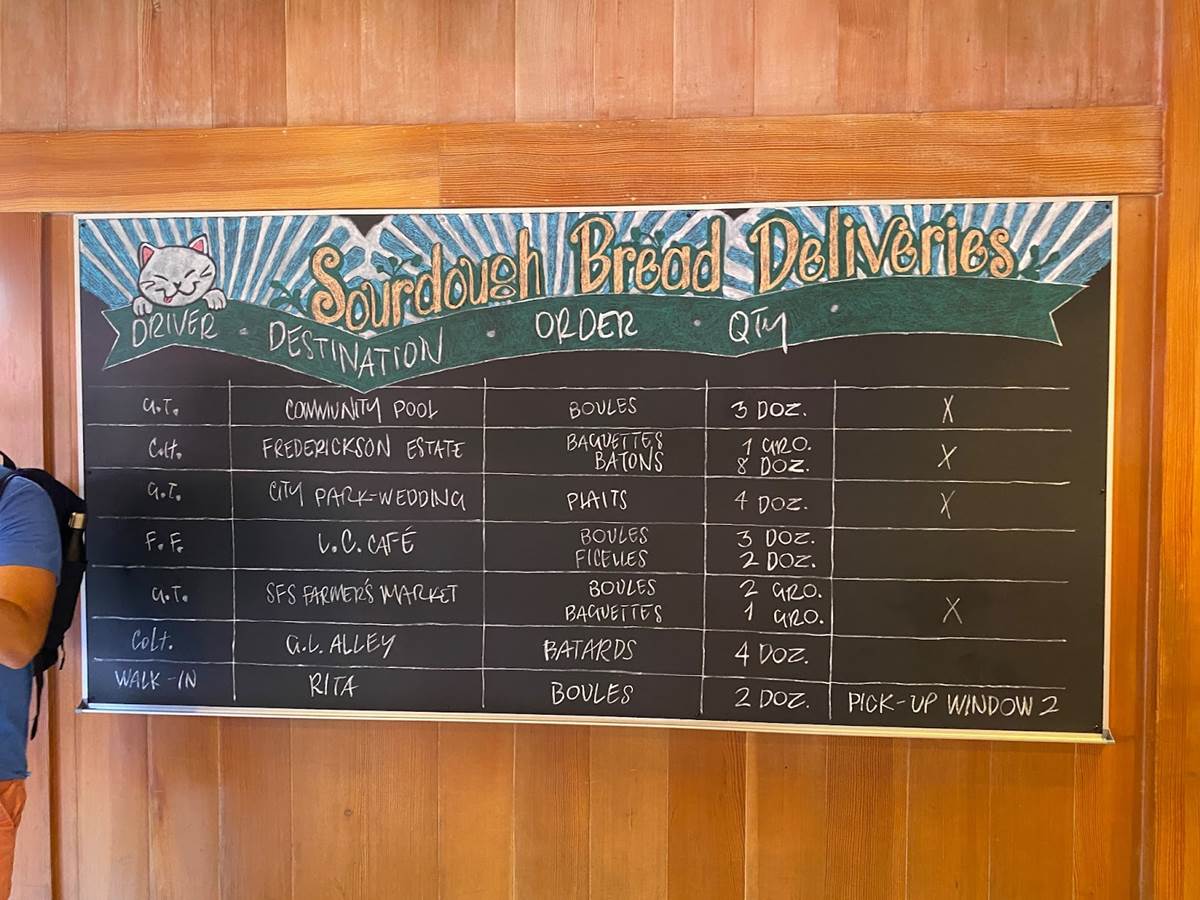 Sourdough Bread Deliveries
DRIVER · DESTINATION · ORDER · QTY ·
G.T. COMMUNITY POOL BOULES 3 DOZ. X
Colt. FREDERICKSON ESTATE BAGUETTES 1 GRO. X
BATONS 8 DOZ.
G.T. CITY PARK-WEDDING PLAITS 4 DOZ. X
F.F. L.C. CAFÉ BOULES 3 DOZ.
FICELLES 2 DOZ.
G.T. SFS FARMER'S MARKET BOULES 2 GRO. X
BAGUETTES 1 GRO.
Colt. G.L. ALLEY BATARDS 4 DOZ.
WALK-IN RITA BOULES 2 DOZ. PICK-UP WINDOW 2